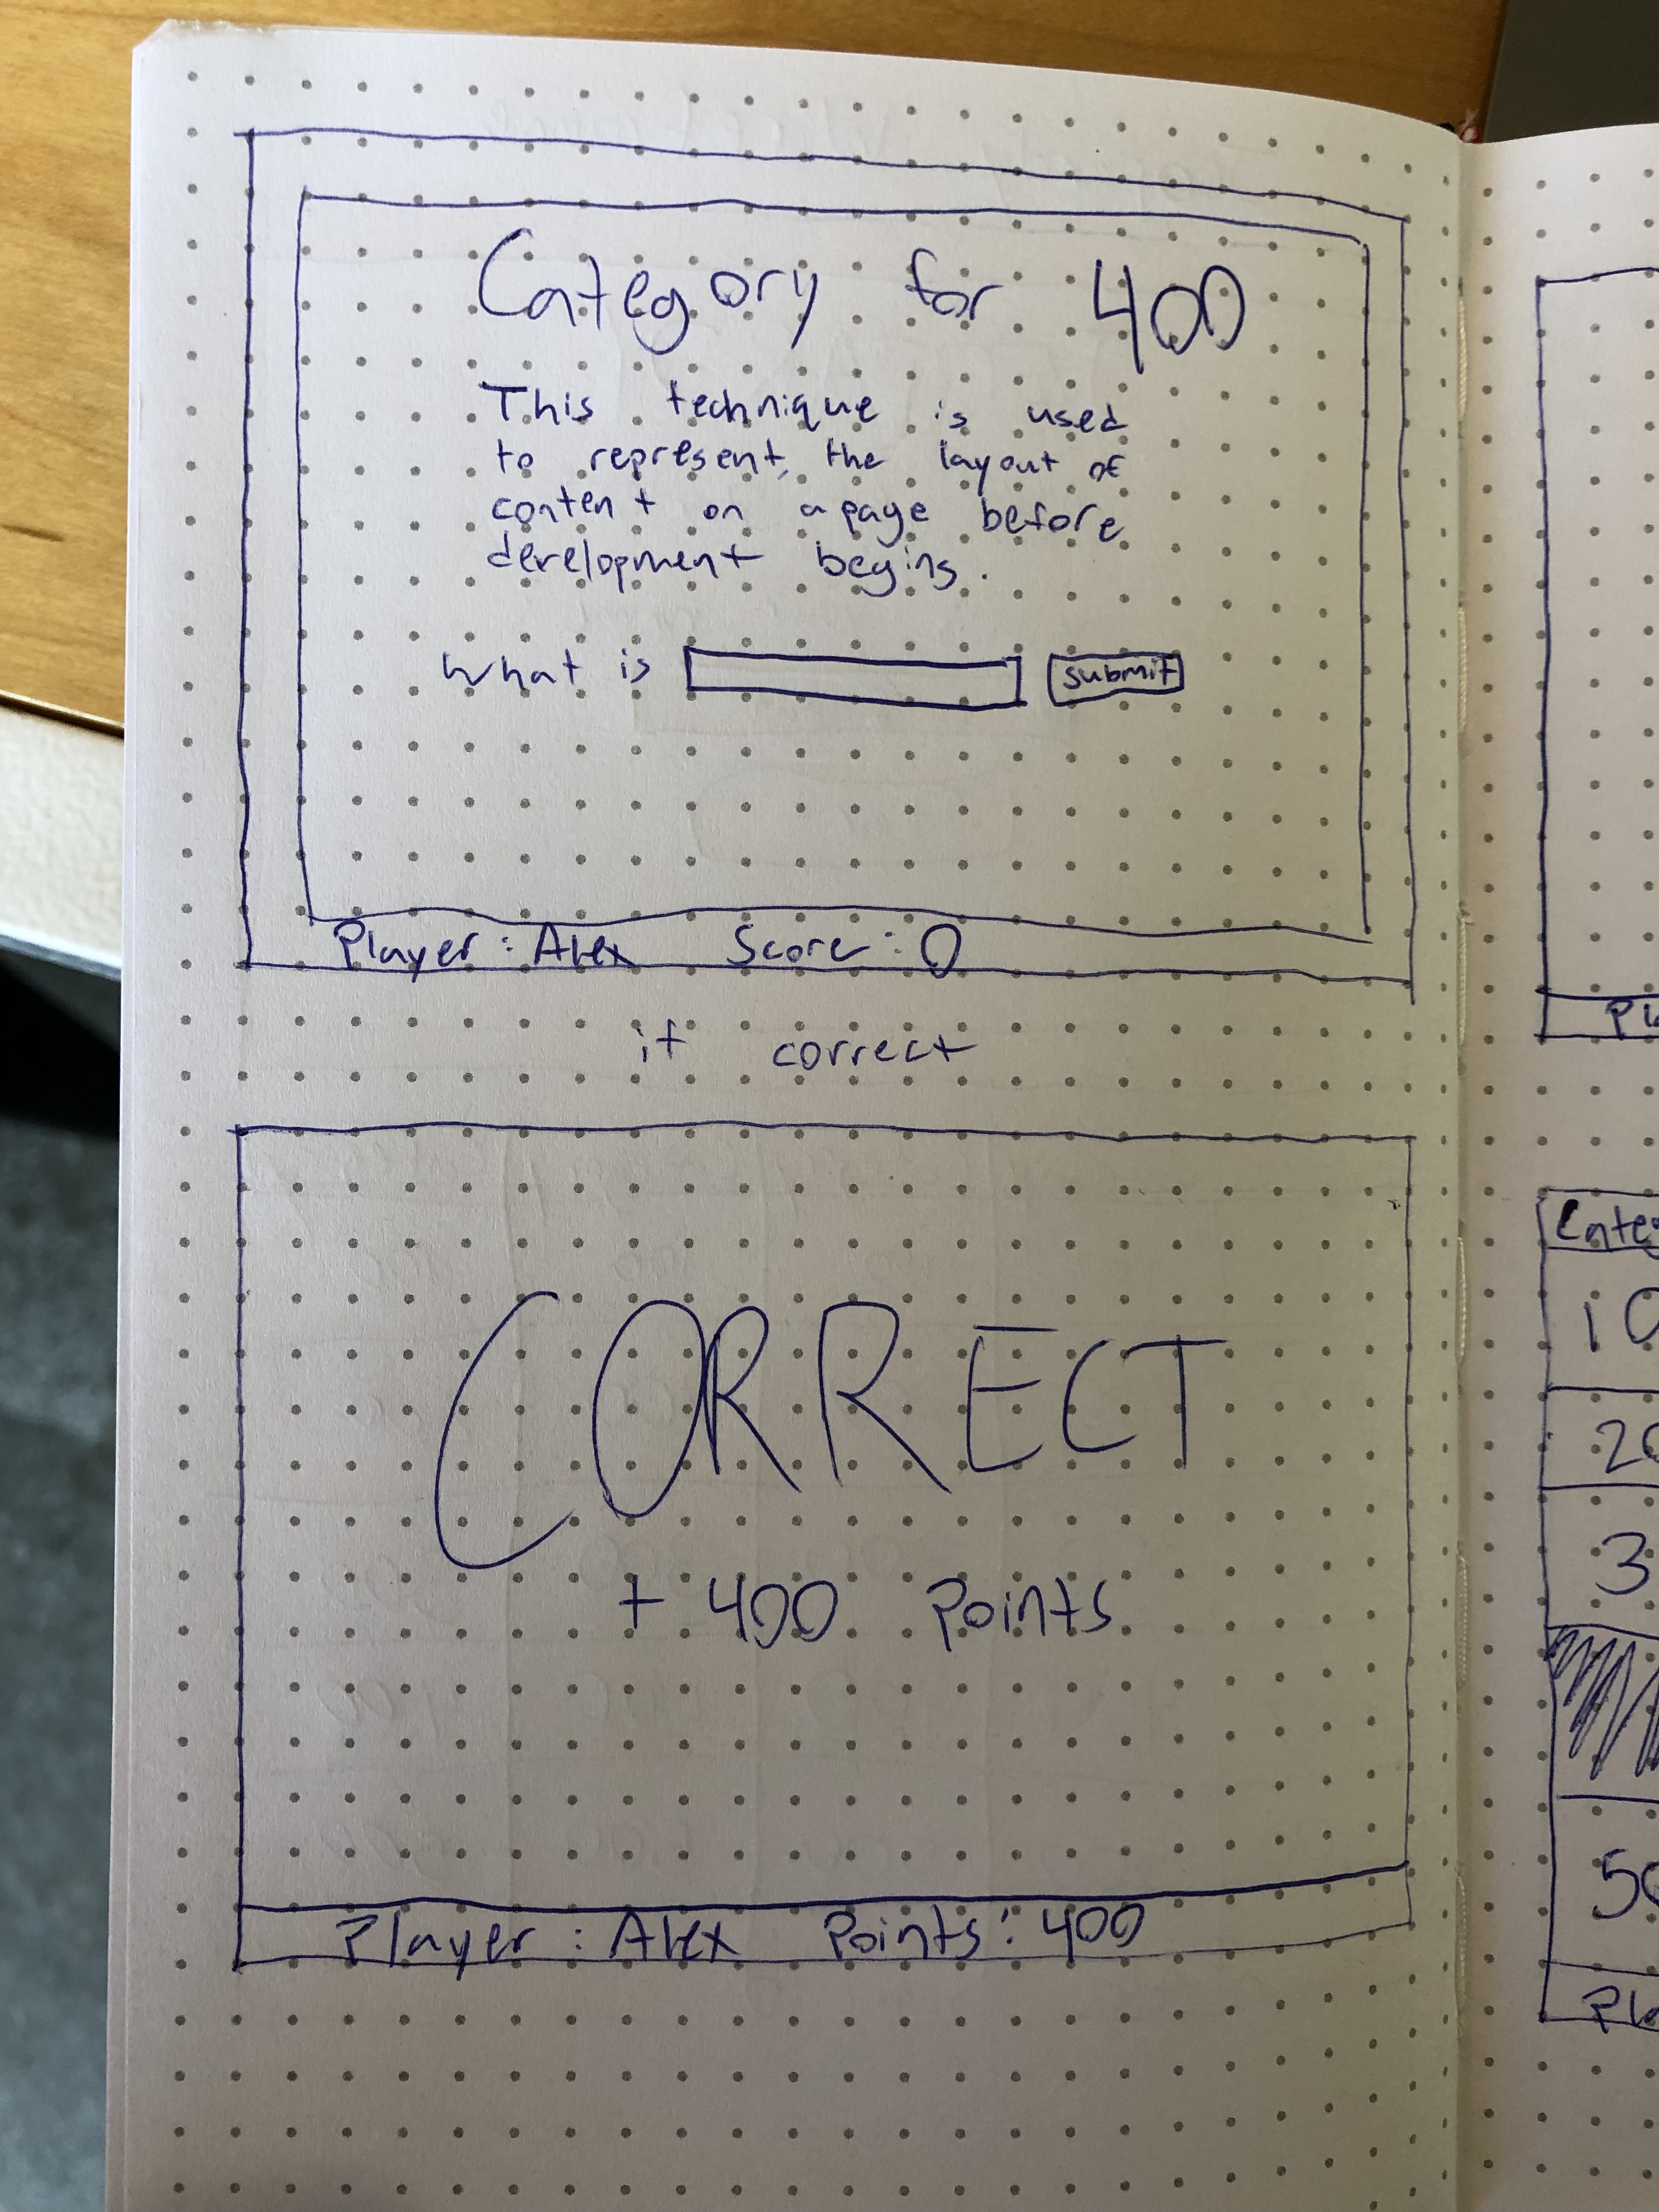 Category for 400
This technique is used
to represent the layout of
content on a page before
development begins.
What is
submit
Player: Alex Score: 0
if correct
CORRECT
+ 400 Points
Player: Alex Points: 400